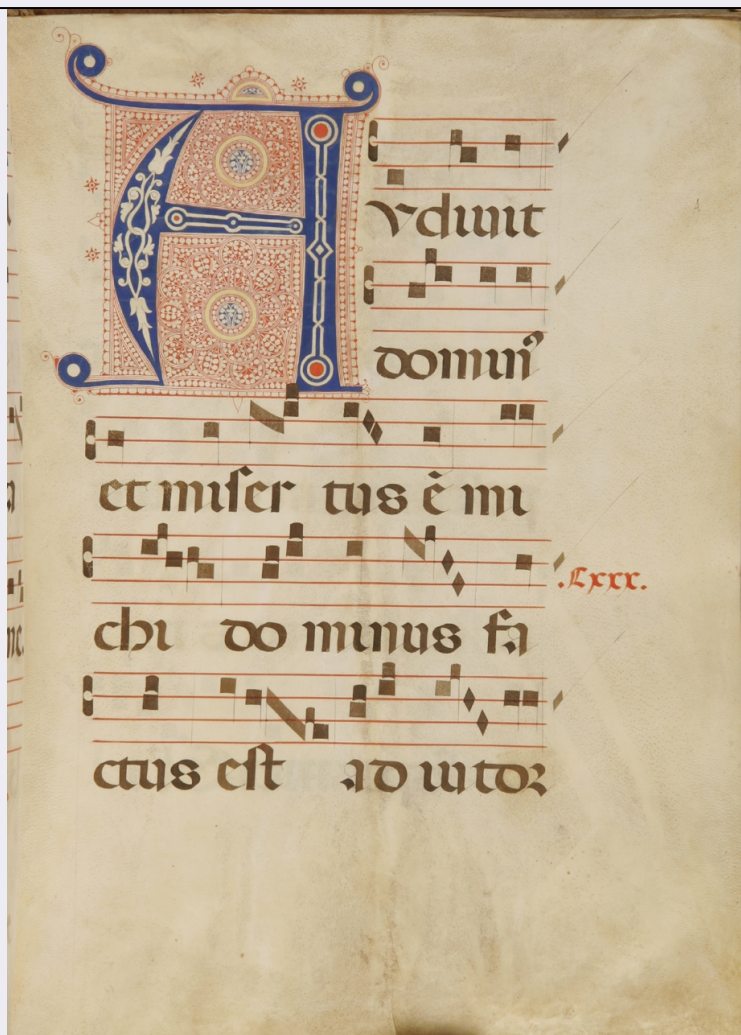 Avdiuit
dominꝰ
et miser tus ē mi
chi do minus fa
.Lxxx.
ctus est ad iutor